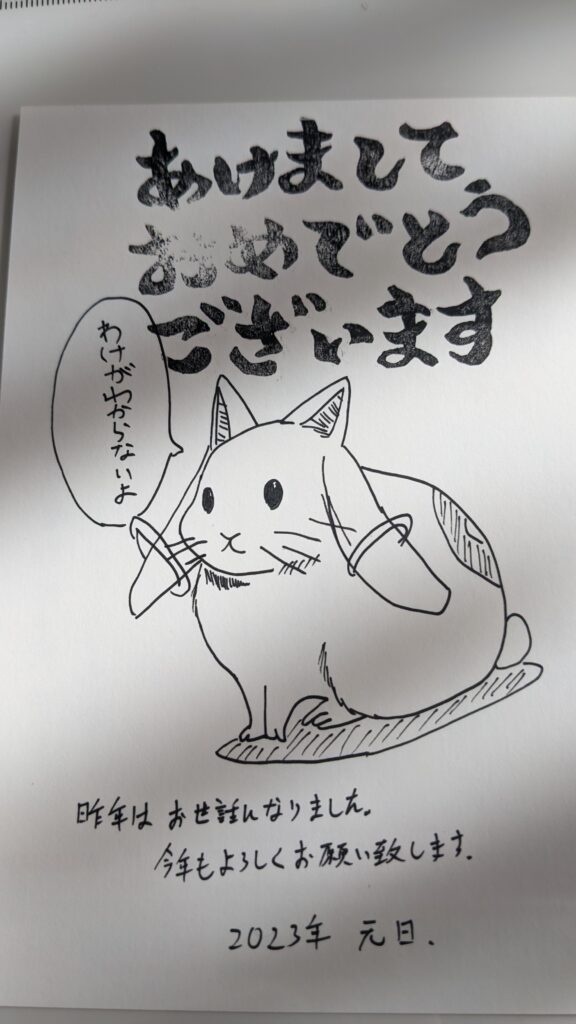 あけまして、
おめでとう
ございます
わけがわからないよ
昨年は お世話になりました。
今年もよろしくお願い致します。
2023年 元日.